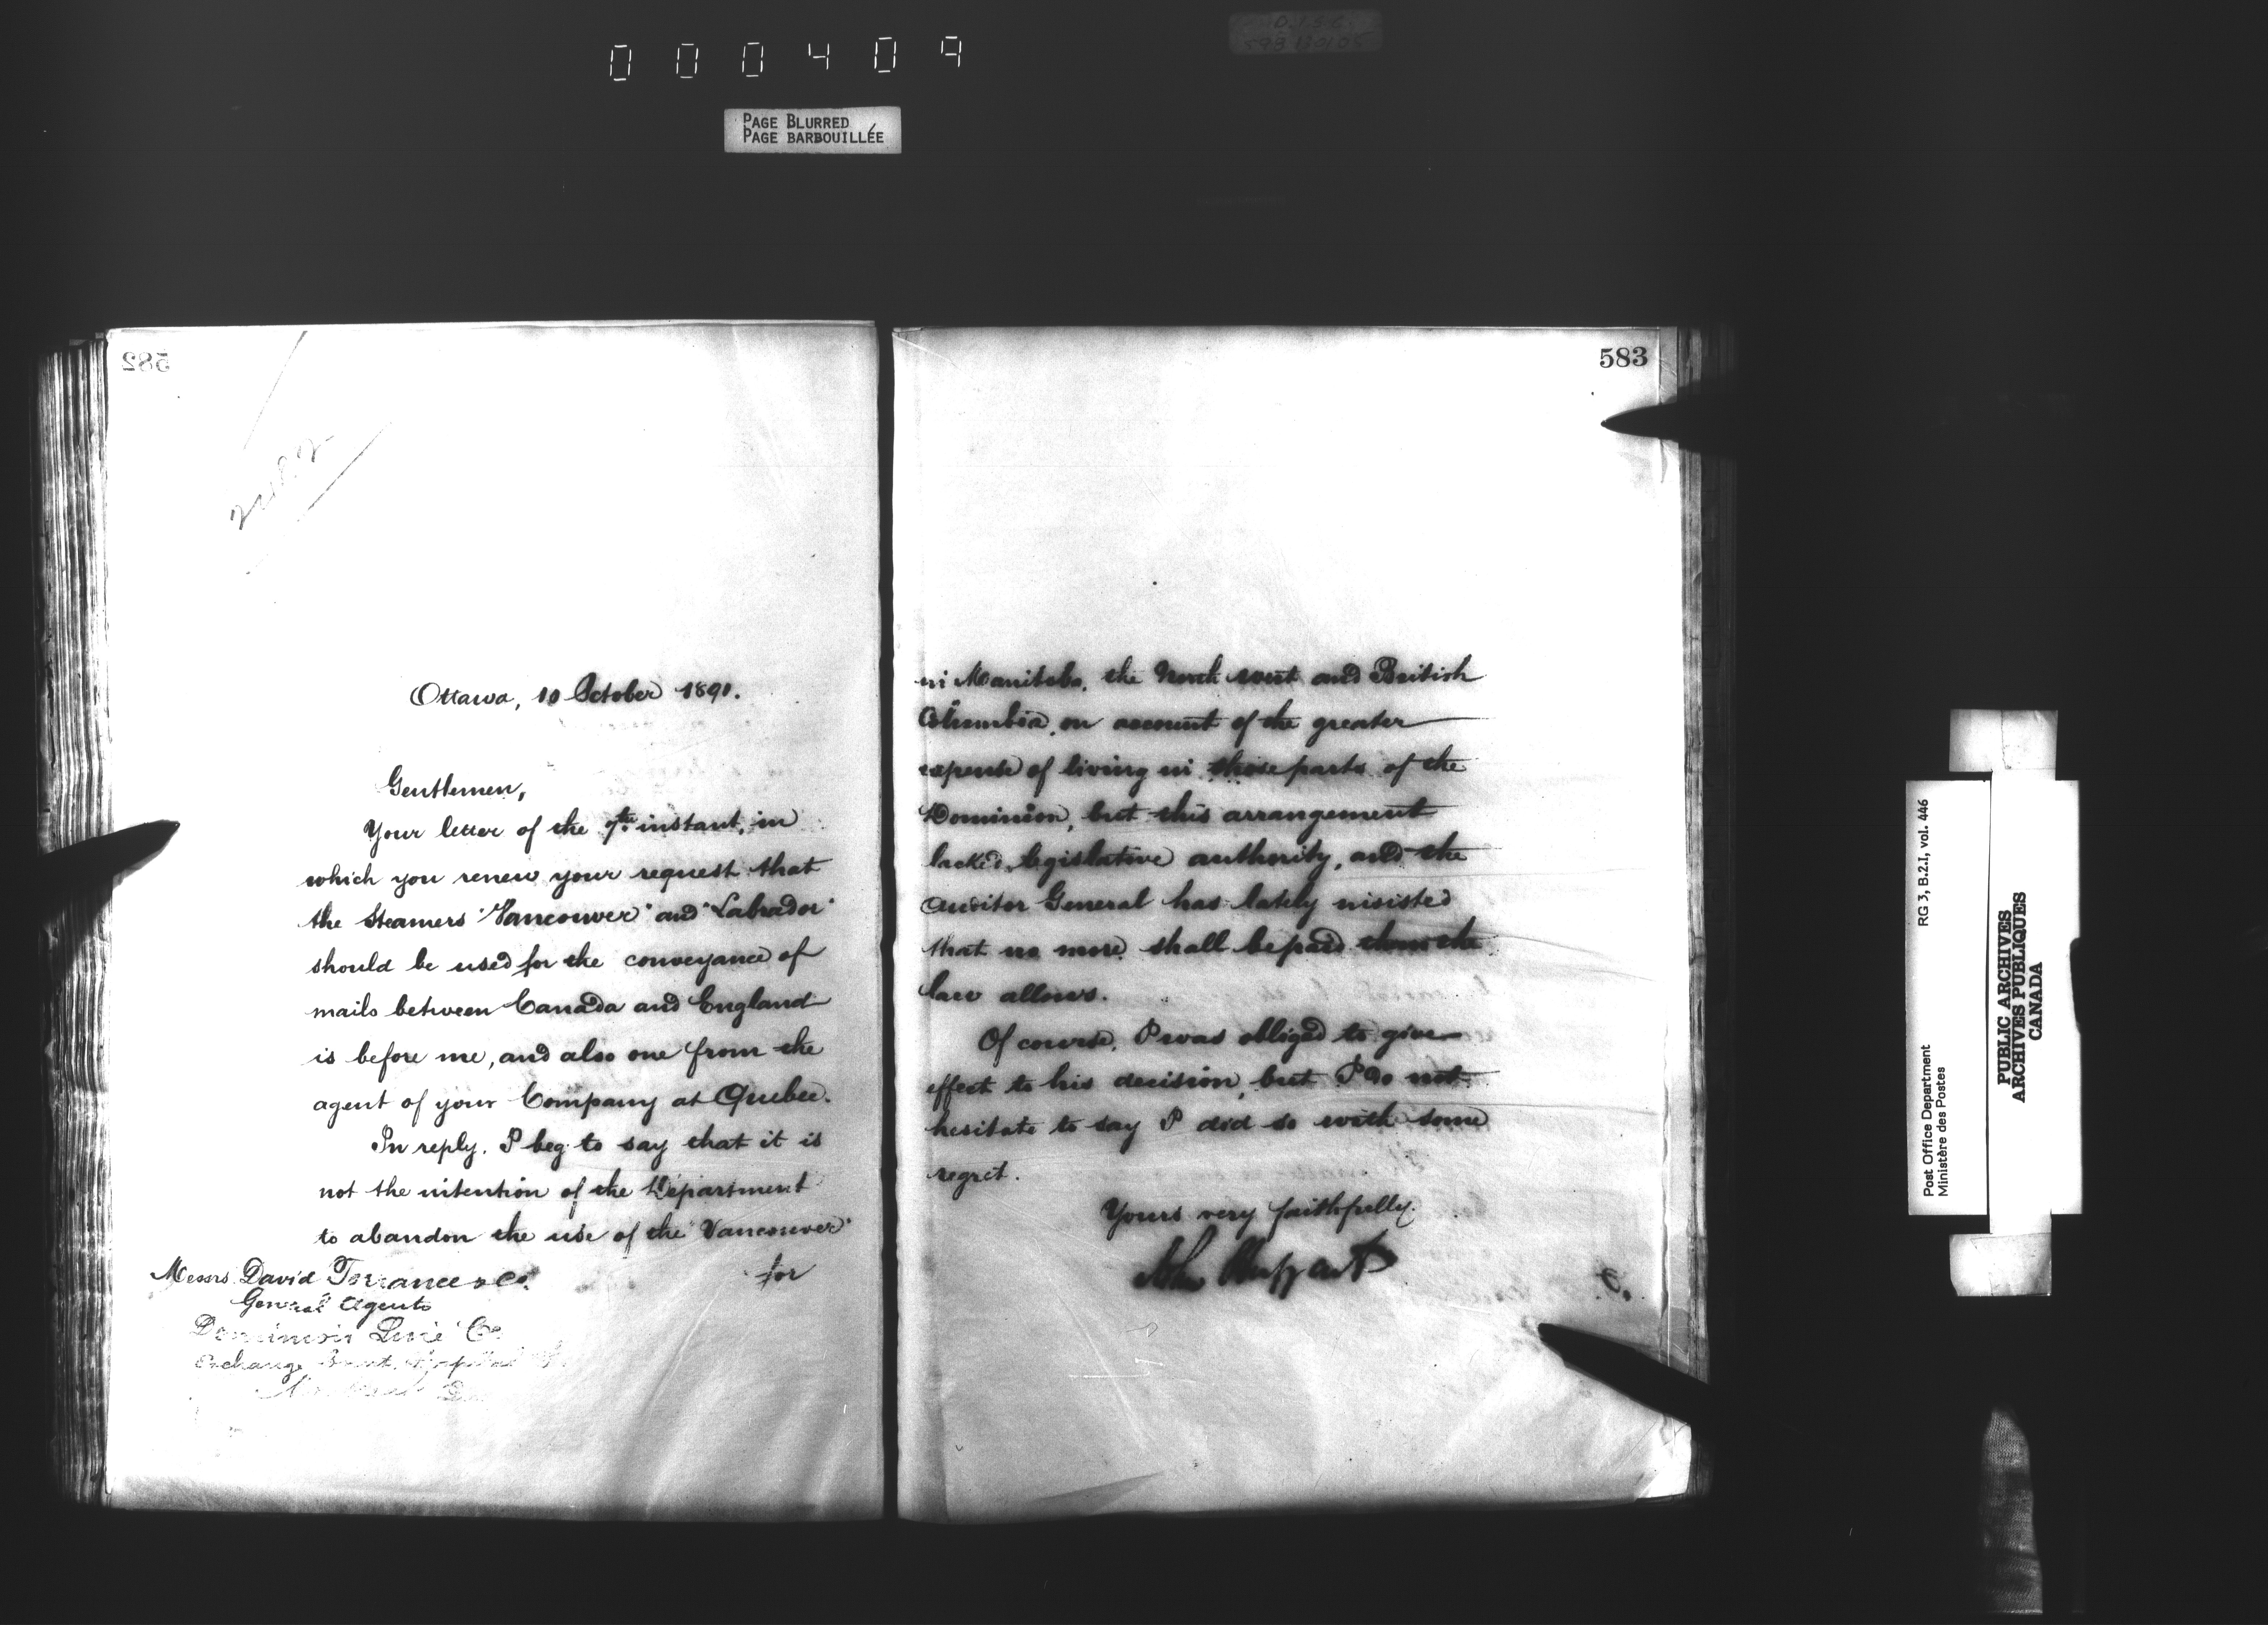 000409
PAGE BLURRED
PAGE BARBOUILLÉE
582
Ottawa, 10 October 1891.
Gentlemen,
Your letter of the 9th. instant, in
which you renew your request that
the Steamers "Vancouver" and "Labrador"
should be used for the conveyance of
mails between Canada and England
is before me, and also one from the
agent of your Company at Quebec.
In reply, I beg to say that it is
not the intention of the Department
to abandon the use of the "Vancouver"
for
Messrs. David Torrance & Co.
General Agents
Dominion Line Co.
Exchange
583
in Manitoba, the North west and British
Columbia, on account of the greater
expense of living in those parts of the
Dominion, but this arrangement
lacked legislative authority, and the
Auditor General has lately insisted
that no more shall be paid than the
law allows.
Of course, I was obliged to give
effect to his decision, but I do not
hesitate to say I did so with some
regret.
Yours very faithfully.
John Haggart
RG 3, B.2.I, vol. 446
Post Office Department
Ministère des Postes
PUBLIC ARCHIVES
ARCHIVES PUBLIQUES
CANADA